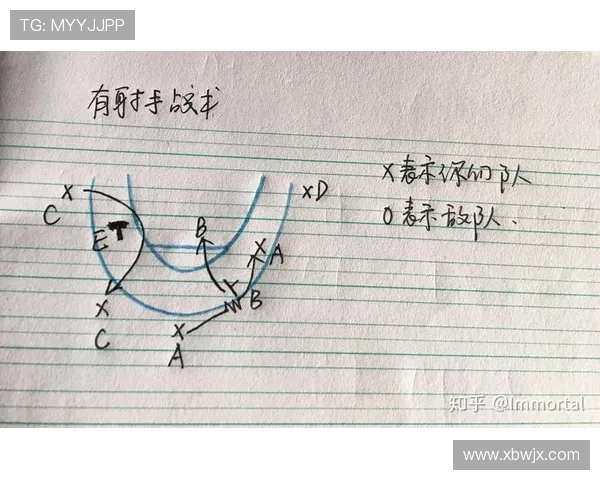 TG: MYYJJPP
有射手战术
X表示你们队
O表示敌队.
X
C
E
B
X A
X D
X
C
B
X
A
知乎 @Immortal
www.xbwjx.com